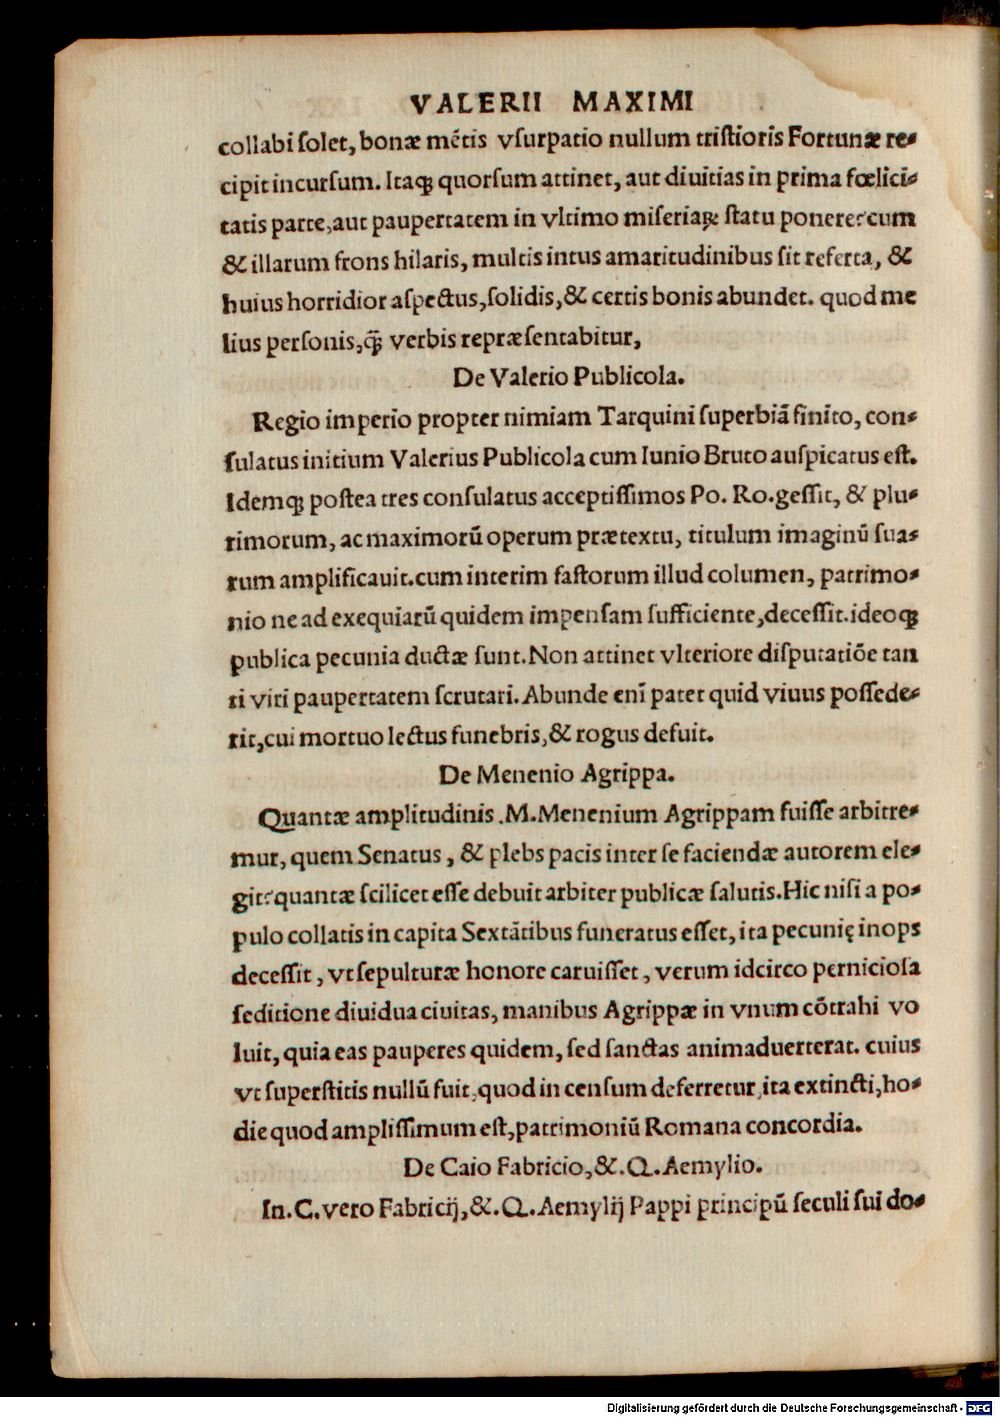 VALERII MAXIMI
collabi ſolet, bonæ mẽtis vſurpatio nullum triſtioris Fortunæ re-
cipit incurſum. Itaqꝫ quorſum attinet, aut diuitias in prima fœlici-
tatis parte, aut paupertatem in vltimo miſeriaꝝ ſtatu ponere? cum
& illarum frons hilaris, multis intus amaritudinibus ſit referta, &
huius horridior aſpectus, ſolidis, & certis bonis abundet. quod me
lius perſonis, q̃ verbis repræſentabitur,
De Valerio Publicola.
Regio imperio propter nimiam Tarquini ſuperbiã finito, con-
ſulatus initium Valerius Publicola cum Iunio Bruto auſpicatus eſt.
Idemqꝫ poſtea tres conſulatus acceptiſſimos Po. Ro. geſſit, & plu-
rimorum, ac maximorũ operum prætextu, titulum imaginũ ſua-
rum amplificauit. cum interim faſtorum illud columen, patrimo-
nio ne ad exequiarũ quidem impenſam ſufficiente, deceſſit. ideoqꝫ
publica pecunia ductæ ſunt. Non attinet vlteriore diſputatiõe tan
ti viri paupertatem ſcrutari. Abunde eni̅ patet quid viuus poſſede-
rit, cui mortuo lectus funebris, & rogus defuit.
De Menenio Agrippa.
Quantæ amplitudinis .M. Menenium Agrippam fuiſſe arbitre-
mur, quem Senatus, & plebs pacis inter ſe faciendæ autorem ele-
git? quantæ ſcilicet eſſe debuit arbiter publicæ ſalutis. Hic niſi a po-
pulo collatis in capita Sextãtibus funeratus eſſet, ita pecunię inops
deceſſit, vt ſepulturæ honore caruiſſet, verum idcirco pernicioſa
ſeditione diuidua ciuitas, manibus Agrippæ in vnum cõtrahi vo
luit, quia eas pauperes quidem, ſed ſanctas animaduerterat. cuius
vt ſuperſtitis nullũ fuit, quod in cenſum deferretur, ita extincti, ho-
die quod ampliſſimum eſt, patrimoniũ Romana concordia.
De Caio Fabricio, &. Q. Aemylio.
In. C. vero Fabricij, &. Q. Aemylij Pappi principũ ſeculi ſui do-
Digitalisierung gefördert durch die Deutsche Forschungsgemeinschaft - DFG